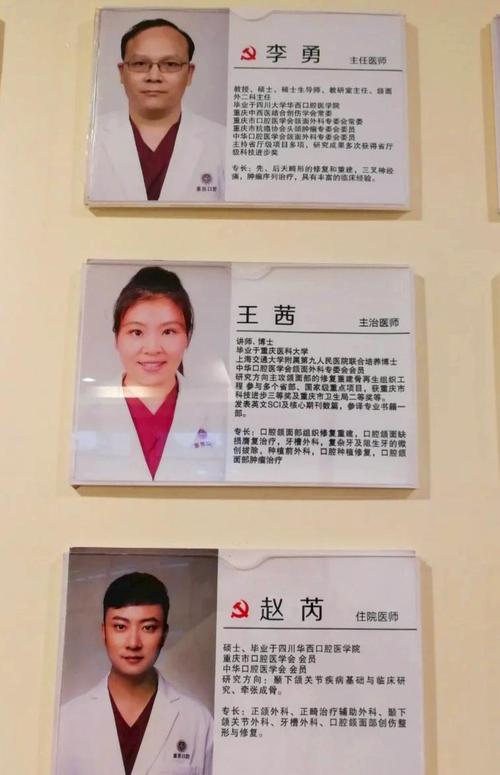 李 勇 主任医师
教授、硕士、硕士生导师、教研室主任、颌面
外二科主任
毕业于四川大学华西口腔医学院
重庆中西医结合创伤学会常委
重庆市口腔医学会颌面外科专委会常委
重庆市抗癌协会头颈肿瘤专委会委员
中华口腔医学会颌面外科专委会会员
主持省厅级项目多项，研究成果多次获得省厅
级科技进步奖
专长：先、后天畸形的修复和重建，三叉神经
痛，肿瘤序列治疗，具有丰富的临床经验。
王 茜 主治医师
讲师、博士
毕业于重庆医科大学
上海交通大学附属第九人民医院联合培养博士
中华口腔医学会颌面外科专委会会员
研究方向主攻颌面部的修复重建骨再生组织工
程 参与多个省部、国家级重点项目，获重庆市
科技进步三等奖及重庆市卫生局二等奖等。
发表英文SCI及核心期刊数篇，参译专业书籍一
部。
专长：口腔颌面部组织修复重建，口腔颌面缺
损赝复治疗，牙槽外科，复杂牙及阻生牙的微
创拔除，种植前外科，口腔种植修复，口腔颌
面部肿瘤治疗
赵 芮 住院医师
硕士、毕业于四川华西口腔医学院
重庆市口腔医学会 会员
中华口腔医学会 会员
研究方向：颞下颌关节疾病基础与临床研
究、牵张成骨。
专长：正颌外科、正畸治疗辅助外科、颞下
颌关节外科、牙槽外科、口腔颌面部创伤整
形与修复。